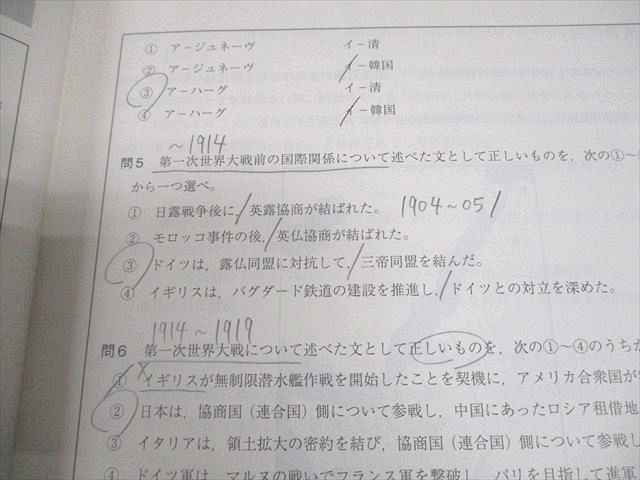 ① アージュネーヴ イー清
② アージュネーヴ イー韓国
③ アーハーグ イー清
④ アーハーグ イー韓国
～1914
問5 第一次世界大戦前の国際関係について述べた文として正しいものを，次の①～
から一つ選べ。
① 日露戦争後に，英露協商が結ばれた。 1904～05
② モロッコ事件の後，英仏協商が結ばれた。
③ ドイツは，露仏同盟に対抗して，三帝同盟を結んだ。
④ イギリスは，バグダード鉄道の建設を推進し，ドイツとの対立を深めた。
1914～1919
問6 第一次世界大戦について述べた文として正しいものを，次の①～④のうちか
① イギリスが無制限潜水艦作戦を開始したことを契機に，アメリカ合衆国が
② 日本は，協商国（連合国）側について参戦し，中国にあったロシア租借地
③ イタリアは，領土拡大の密約を結び，協商国（連合国）側について参戦し
④ ドイツ軍は，マルヌの戦いでフランス軍を撃破し，パリを目指して進軍